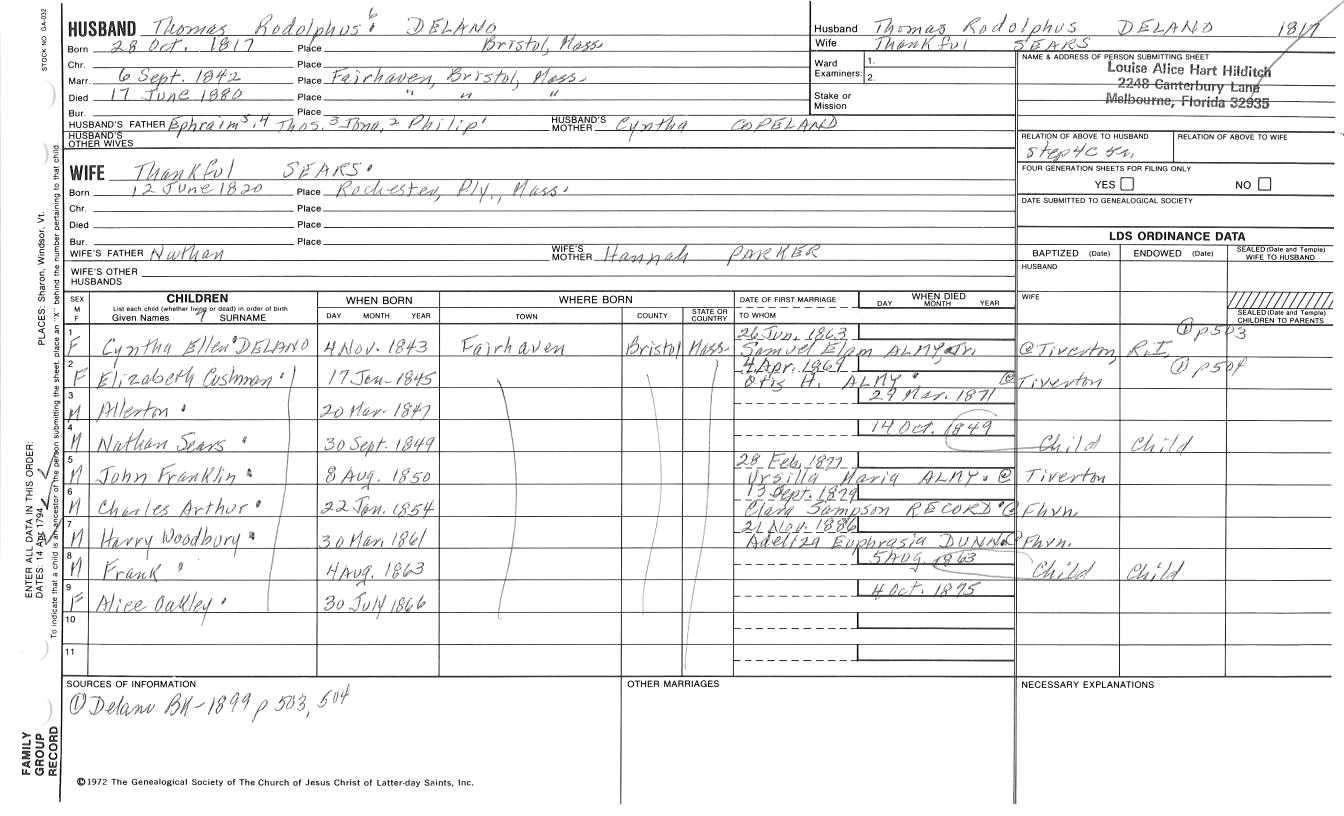 STOCK NO. GA-032
HUSBAND Thomas Rodolphus 6 DELANO
Born 28 Oct. 1817 Place Bristol, Mass.
Chr. Place
Marr. 6 Sept. 1842 Place Fairhaven, Bristol, Mass.
Died 17 June 1880 Place " " "
Bur. Place
HUSBAND'S FATHER Ephraim 5, 4 Thos. 3 Jona, 2 Philip 1 HUSBAND'S MOTHER Cyntha COPELAND
HUSBAND'S OTHER WIVES
WIFE Thankful SEARS.
Born 12 June 1820 Place Rochester, Ply., Mass.
Chr. Place
Died Place
Bur. Place
WIFE'S FATHER Nathan WIFE'S MOTHER Hannah PARKER
WIFE'S OTHER HUSBANDS
Husband Thomas Rodolphus DELANO 1817
Wife Thankful SEARS
Ward Examiners: 1. 2.
Stake or Mission
NAME & ADDRESS OF PERSON SUBMITTING SHEET
Louise Alice Hart Hilditch
2248 Canterbury Lane
Melbourne, Florida 32935
RELATION OF ABOVE TO HUSBAND RELATION OF ABOVE TO WIFE
Step 4C 4r.
FOUR GENERATION SHEETS FOR FILING ONLY
YES NO
DATE SUBMITTED TO GENEALOGICAL SOCIETY
LDS ORDINANCE DATA
BAPTIZED (Date) ENDOWED (Date) SEALED (Date and Temple) WIFE TO HUSBAND
HUSBAND
WIFE
SEALED (Date and Temple) CHILDREN TO PARENTS
SEX M F CHILDREN WHEN BORN WHERE BORN DATE OF FIRST MARRIAGE WHEN DIED
List each child (whether living or dead) in order of birth DAY MONTH YEAR
Given Names 7 SURNAME DAY MONTH YEAR TOWN COUNTY STATE OR COUNTRY TO WHOM
1 F Cyntha Ellen DELANO 4 Nov. 1843 Fairhaven Bristol Mass. 26 Jun. 1863 Samuel Elam ALMY Jr. @ Tiverton, R.I. ① p503
2 F Elizabeth Cushman 17 Jan-1845 4 Apr. 1869 Otis H. ALMY @ Tiverton ① p504
3 M Allerton 20 Mar. 1847 29 Mar. 1871
4 M Nathan Sears 30 Sept. 1849 14 Oct. 1849 Child Child
5 M John Franklin 8 Aug. 1850 28 Feb. 1877 Ursilla Maria ALMY. @ Tiverton
6 M Charles Arthur 22 Jan. 1854 13 Sept. 1879 Clara Sampson RECORD @ Fhvn.
7 M Harry Woodbury 30 Mar. 1861 21 Nov. 1886 Adeliza Euphrasia DUNN @ Fhvn.
8 M Frank 4 Aug. 1863 5 Aug. 1863 Child Child
9 F Alice Oakley 30 July 1866 4 Oct. 1875
10
11
SOURCES OF INFORMATION
① Delano BK-1899 p 503, 504
OTHER MARRIAGES
NECESSARY EXPLANATIONS
©1972 The Genealogical Society of The Church of Jesus Christ of Latter-day Saints, Inc.
ENTER ALL DATA IN THIS ORDER:
DATES: 14 Apr 1794 PLACES: Sharon, Windsor, Vt.
To indicate that a child is an ancestor of the person submitting the sheet, place an "X" behind the number pertaining to that child.
FAMILY GROUP RECORD